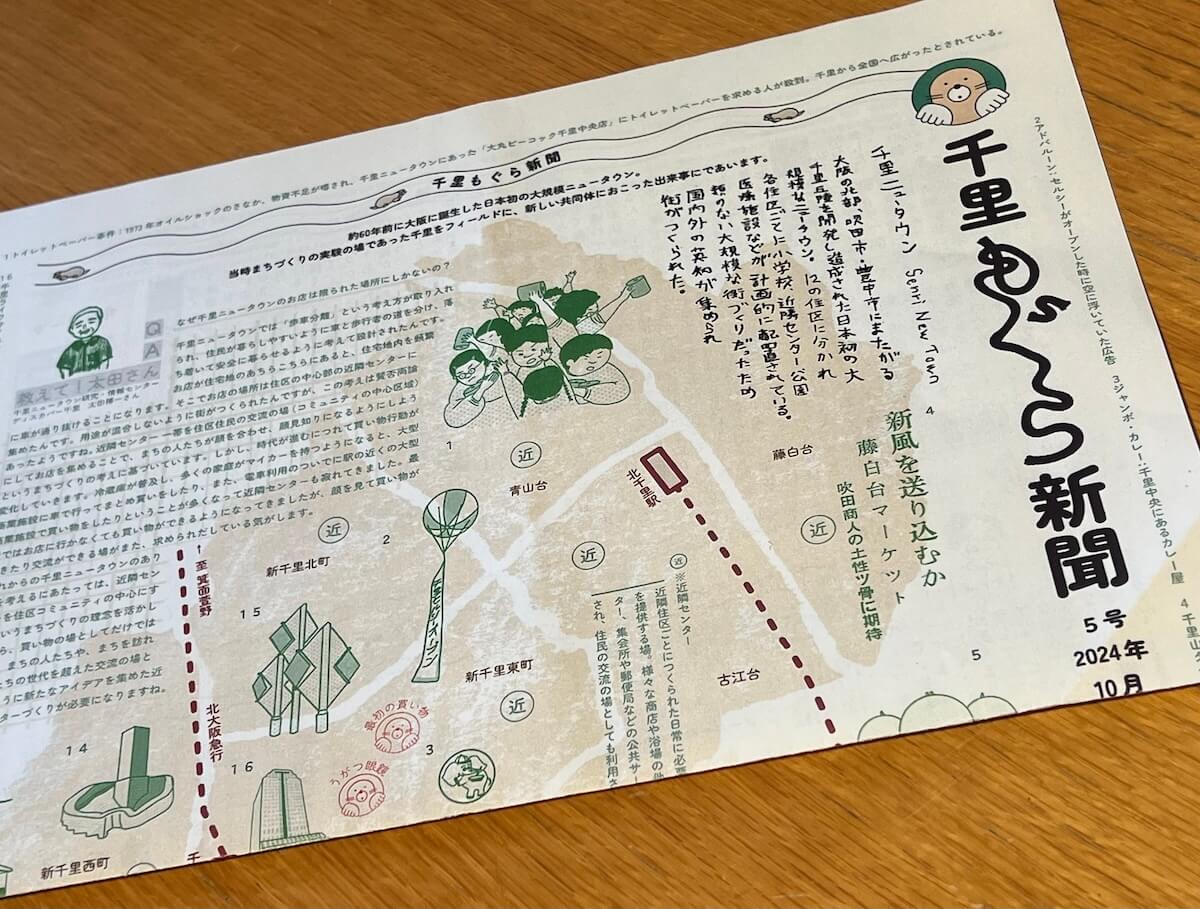 千里もぐら新聞
5号
2024年
10月
1 トイレットペーパー事件：1973年オイルショックのさなか、物資不足が噂され、千里ニュータウンにあった「大丸ピーコック千里中央店」にトイレットペーパーを求める人が殺到。千里から全国へ広がったとされている。
2 アドバルーン：セルシーがオープンした時に空に浮いていた広告
3 ジャンボ・カレー：千里中央にあるカレー屋
4 千里山
千里もぐら新聞
約60年前に大阪に誕生した日本初の大規模ニュータウン。
当時まちづくりの実験の場であった千里をフィールドに、新しい共同体におこった出来事にであいます。
千里ニュータウン Senri New Town
大阪の北部、吹田市・豊中市にまたがる
千里丘陵を開発し造成された日本初の大
規模なニュータウン。12の住区に分かれ
各住区ごとに小学校、近隣センター、公園
医療施設などが計画的に配置されている。
類のない大規模な街づくりだったため
国内外の英知が集められ
街がつくられた。
4
新風を送り込むか
藤白台マーケット
吹田商人の土性ッ骨に期待
Q
A
教えて！太田さん
千里ニュータウン研究・情報センター
ディスカバー千里 太田博一さん
なぜ千里ニュータウンのお店は限られた場所にしかないの？
千里ニュータウンでは「歩車分離」という考え方が取り入れ
られ、住民が暮らしやすいように車と歩行者の道を分け、落
ち着いて安全に暮らせるように考えて設計されたんです。
お店が住宅地のあちらこちらにあると、住宅地内を頻繁
に車が通り抜けることになります。そこでお店の場所は住区の中心部の近隣センターに
集めたんです。用途が混合しないように街がつくられたんですが、この考えは賛否両論
あったようですね。近隣センター一帯を住区住民の交流の場（コミュニティの中心区域）
にしてお店を集めることで、まちの人たちが顔を合わせ、顔見知りになるようにしよう
というまちづくりの考えに基づいています。しかし、時代が進むにつれて買い物行動が
変化していきます。冷蔵庫が普及し、多くの家庭がマイカーを持つようになると、大型
商業施設に車で行ってまとめ買いをしたり、また、電車利用のついでに駅の近くの大型
商業施設で買い物をしたりということが多くなって近隣センターも寂れてきました。最
ではお店に行かなくても買い物ができるようになってきましたが、顔を見て買い物が
きたり交流ができる場がまた、求められだしている気がします。
れからの千里ニュータウンのあり
を考えるにあたっては、近隣セン
を住区コミュニティの中心にす
いうまちづくりの理念を活かし
ら、買い物の場としてだけでは
まちの人たちや、まちを訪れ
たちの世代を超えた交流の場と
うに新たなアイデアを集めた近
ターづくりが必要になりますね。
1
近
青山台
北千里駅
藤白台
近
近
近
2
新千里北町
至 箕面萱野
15
新千里東町
近
古江台
5
㊣近 ※近隣センター
近隣住区ごとにつくられた日常に必要
を提供する場。様々な商店や浴場の他
ター、集会所や郵便局などの公共サー
され、住民の交流の場としても利用さ
北大阪急行
最初の買い物
うがつ眼鏡
3
14
16
新千里西町
千